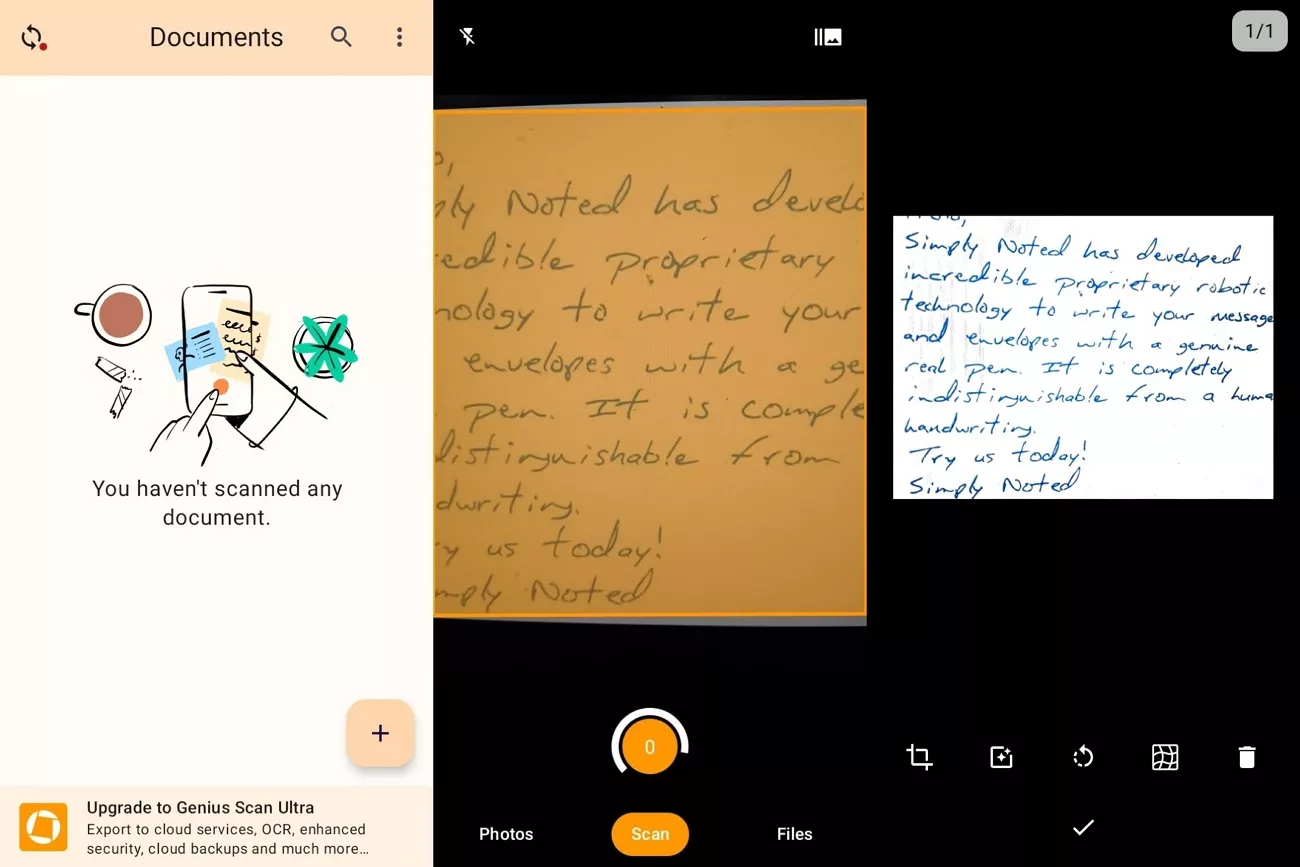 Documents
You haven't scanned any
document.
+
Upgrade to Genius Scan Ultra
Export to cloud services, OCR, enhanced
security, cloud backups and much more…
ply Noted has develo
edible proprietary
nology to write your
envelopes with a ge
pen. It is comple
distinguishable from
dwriting.
y us today!
mply Noted
0
Photos
Scan
Files
1/1
Simply Noted has developed
incredible proprietary robotic
technology to write your message
and envelopes with a genuine
real pen. It is completely
indistinguishable from a huma
handwriting.
Try us today!
Simply Noted